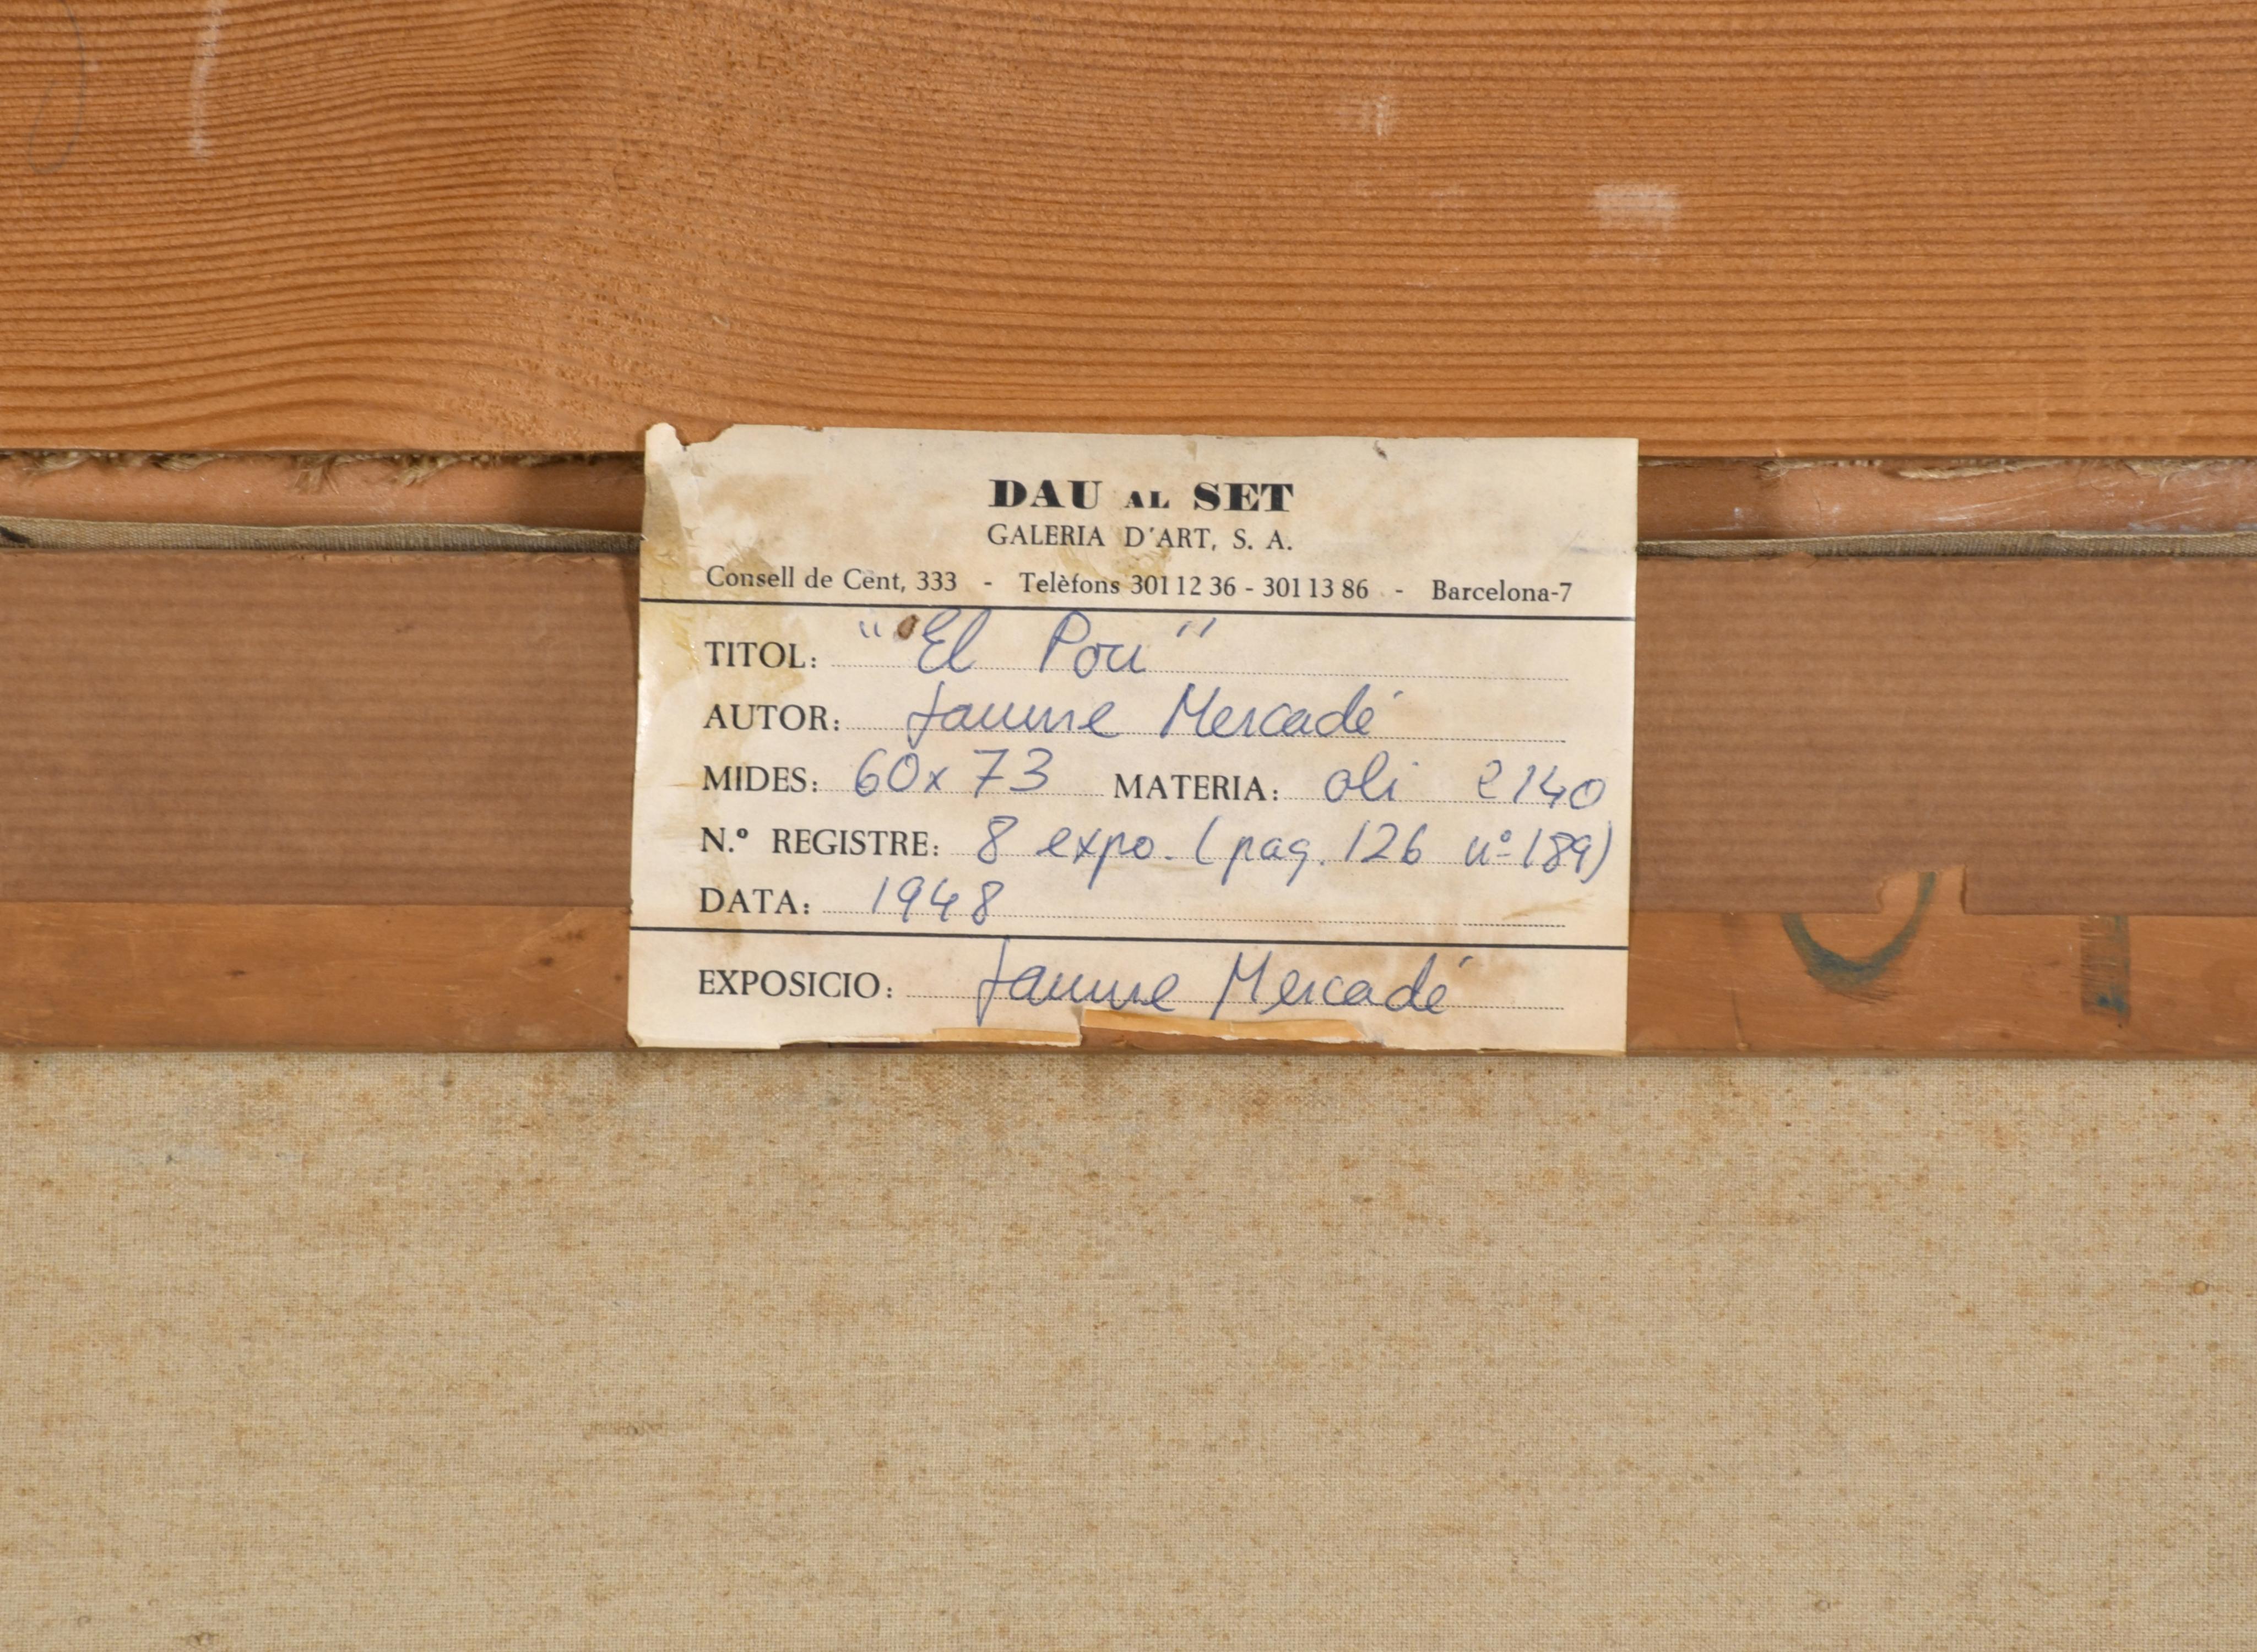 DAU AL SET
GALERIA D'ART, S. A.
Consell de Cent, 333 - Telèfons 301 12 36 - 301 13 86 - Barcelona-7
TITOL: "El Pou"
AUTOR: Jaume Mercadé
MIDES: 60x73 MATERIA: oli 2140
N.º REGISTRE: 8 expo. (pag. 126 nº 189)
DATA: 1948
EXPOSICIO: Jaume Mercadé